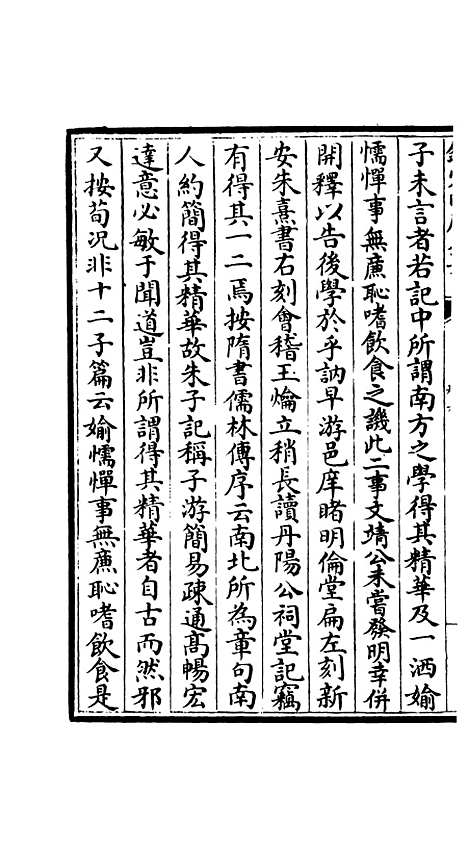 子未言者若記中所謂南方之學得其精華及一洒媮
懦憚事無廉恥嗜飲食之譏此二事文靖公未嘗發明幸併
開釋以告後學於乎訥早游邑庠睹明倫堂扁左刻新
安朱熹書右刻會稽王爚立稍長讀丹陽公祠堂記竊
有得其一二焉按隋書儒林傳序云南北所為章句南
人約簡得其精華故朱子記稱子游簡易疎通髙暢宏
達意必敏于聞道豈非所謂得其精華者自古而然邪
又按荀況非十二子篇云媮懦憚事無廉恥嗜飲食是